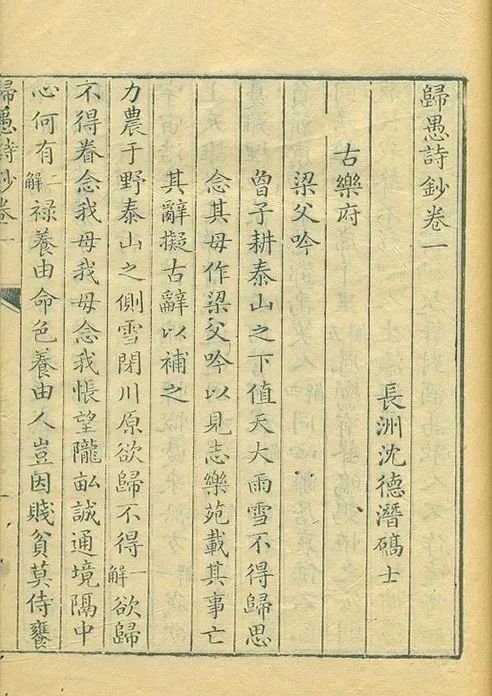 歸愚詩鈔卷一
長洲沈德潛碻士
古樂府
梁父吟
曾子耕泰山之下值天大雨雪不得歸思
念其母作梁父吟以見志樂苑載其事亡
其辭擬古辭以補之
力農于野泰山之側雪閉川原欲歸不得一解欲歸
不得眷念我母我母念我悵望隴畝誠通境隔中
心何有二解祿養由命色養由人豈因賤貧莫侍饔
歸愚詩鈔卷一
一